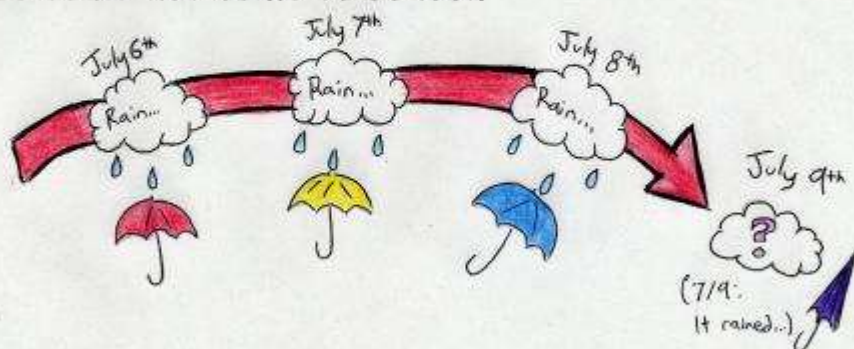 July 6th
Rain...
July 7th
Rain...
July 8th
Rain...
July 9th
?
(7/9:
It rained...)